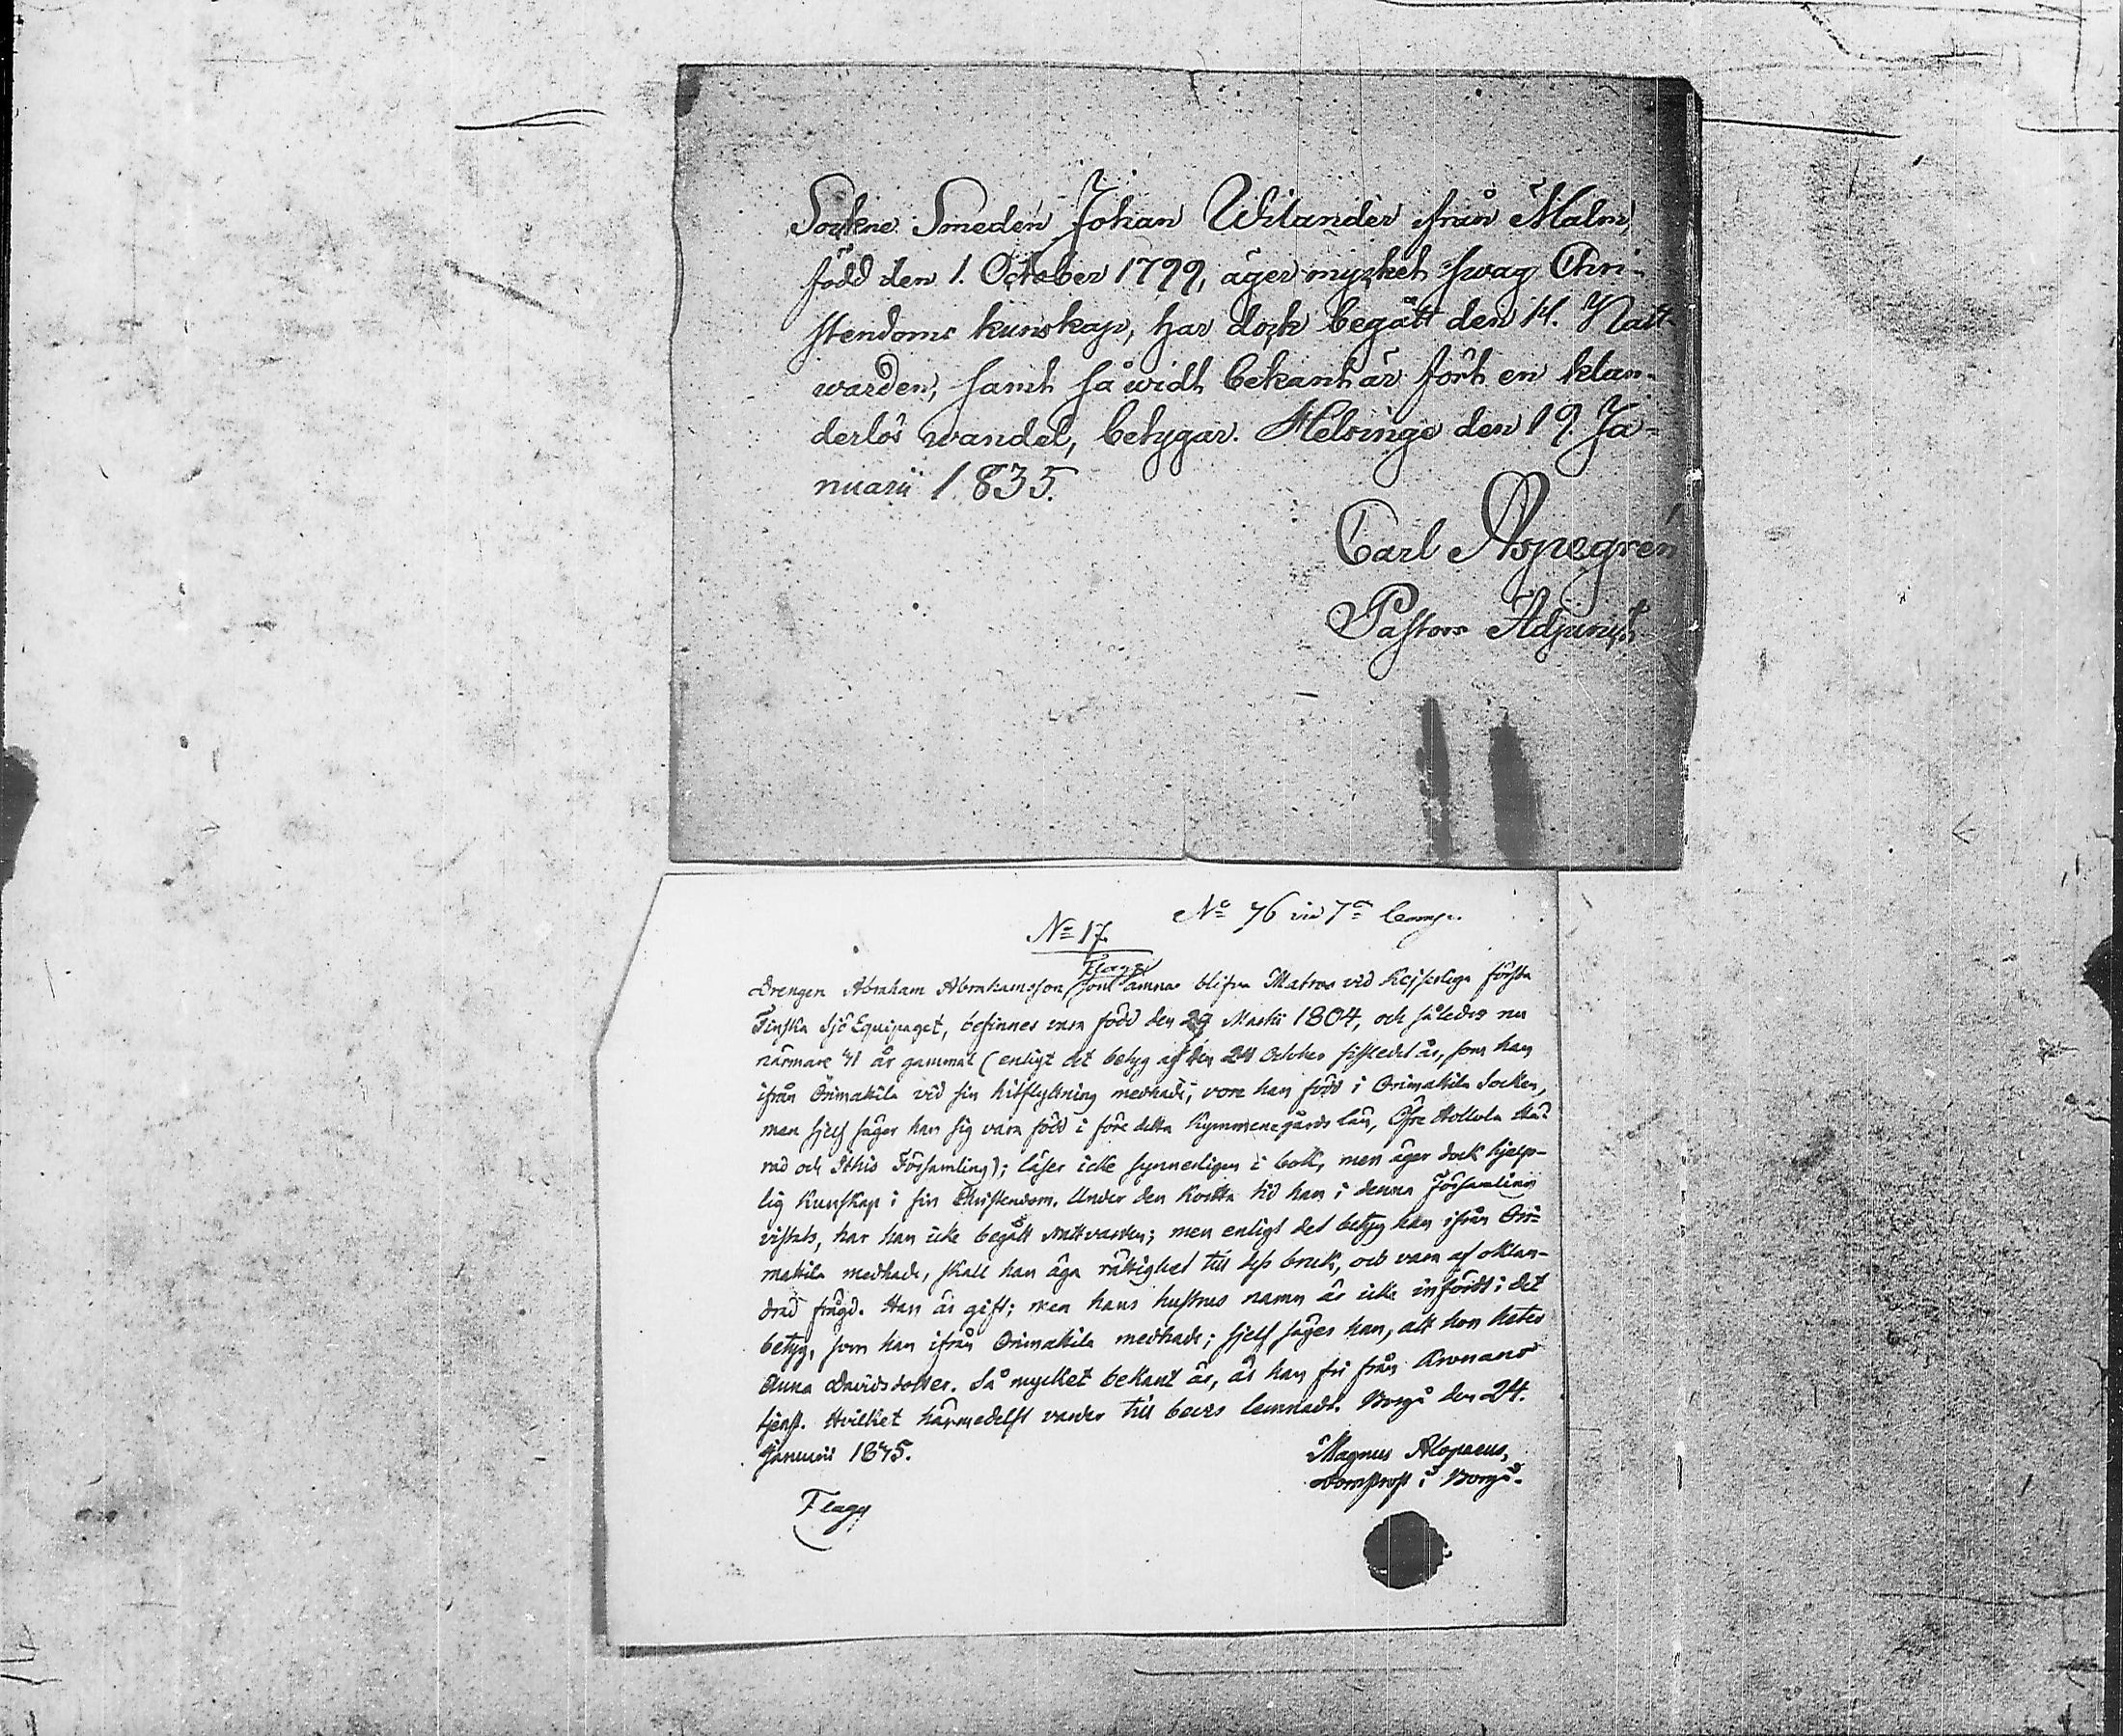 Sockne Smeden Johan Wilander från Malm,
född den 1. October 1799, äger mycket swag Chri-
stendoms kunskap, har dock begått den H. Natt-
warden, samt så widt bekant är fört en klan-
derlös wandel, betygar. Helsinge den 19. Ja-
nuarii 1835.
Carl Aspegren
Pastors Adjunct
No 76 vid 7de Comp.
No 17.
Flagg
Drengen Abraham Abrahamsson som ämnar blifva Matros vid Kejserliga första
Finska Sjö Equipaget, befinnes vara född den 29 Martii 1804, och således nu
närmare 41 år gammal (enligt det betyg af den 24 October sistledet år, som han
ifrån Orimattila vid sin hitflyttning medhade, vore han född i Orimattila Socken,
men sjelf säger han sig vara född i före detta Kymmenegårds län, Öfre Hollola Hä-
rad och Ithis Församling); läser icke synnerligen i bok, men äger dock hjelp-
lig kunskap i sin Christendom. Under den korta tid han i denna Församling
vistats, har han icke begått nattvarden; men enligt det betyg han ifrån Ori-
mattila medhade, skall han äga rättighet till dess bruk, och vara af oklan-
drad frägd. Han är gift; men hans hustrus namn är icke infördt i det
betyg, som han ifrån Orimattila medhade; sjelf säger han, att hon heter
Anna Davidsdotter. Så mycket bekant är, är han fri från Kronans
tjenst. Hvilket härmedelst varder till bevis lemnadt. Borgå den 24.
Januarii 1845.
Magnus Alopaeus,
Domprost i Borgå.
Flagg